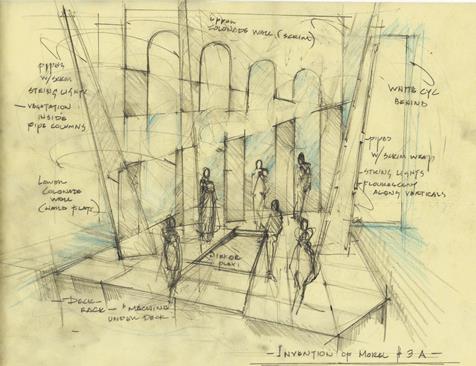 UPPER
COLONADE WALL (SCRIM)
PIPES
W/ SCRIM
STRING LIGHTS
VEGETATION
INSIDE
PIPE COLUMNS
WHITE CYC
BEHIND
LOWER
COLONADE
WALL
(HARD FLATS)
PIPES
W/ SCRIM WRAP
STRING LIGHTS
ALONG VERTICALS
MIRROR
PLEXI
DECK
RAKE
"MACHINE
UNDER DECK
INVENTION OF MOREL # 3 A